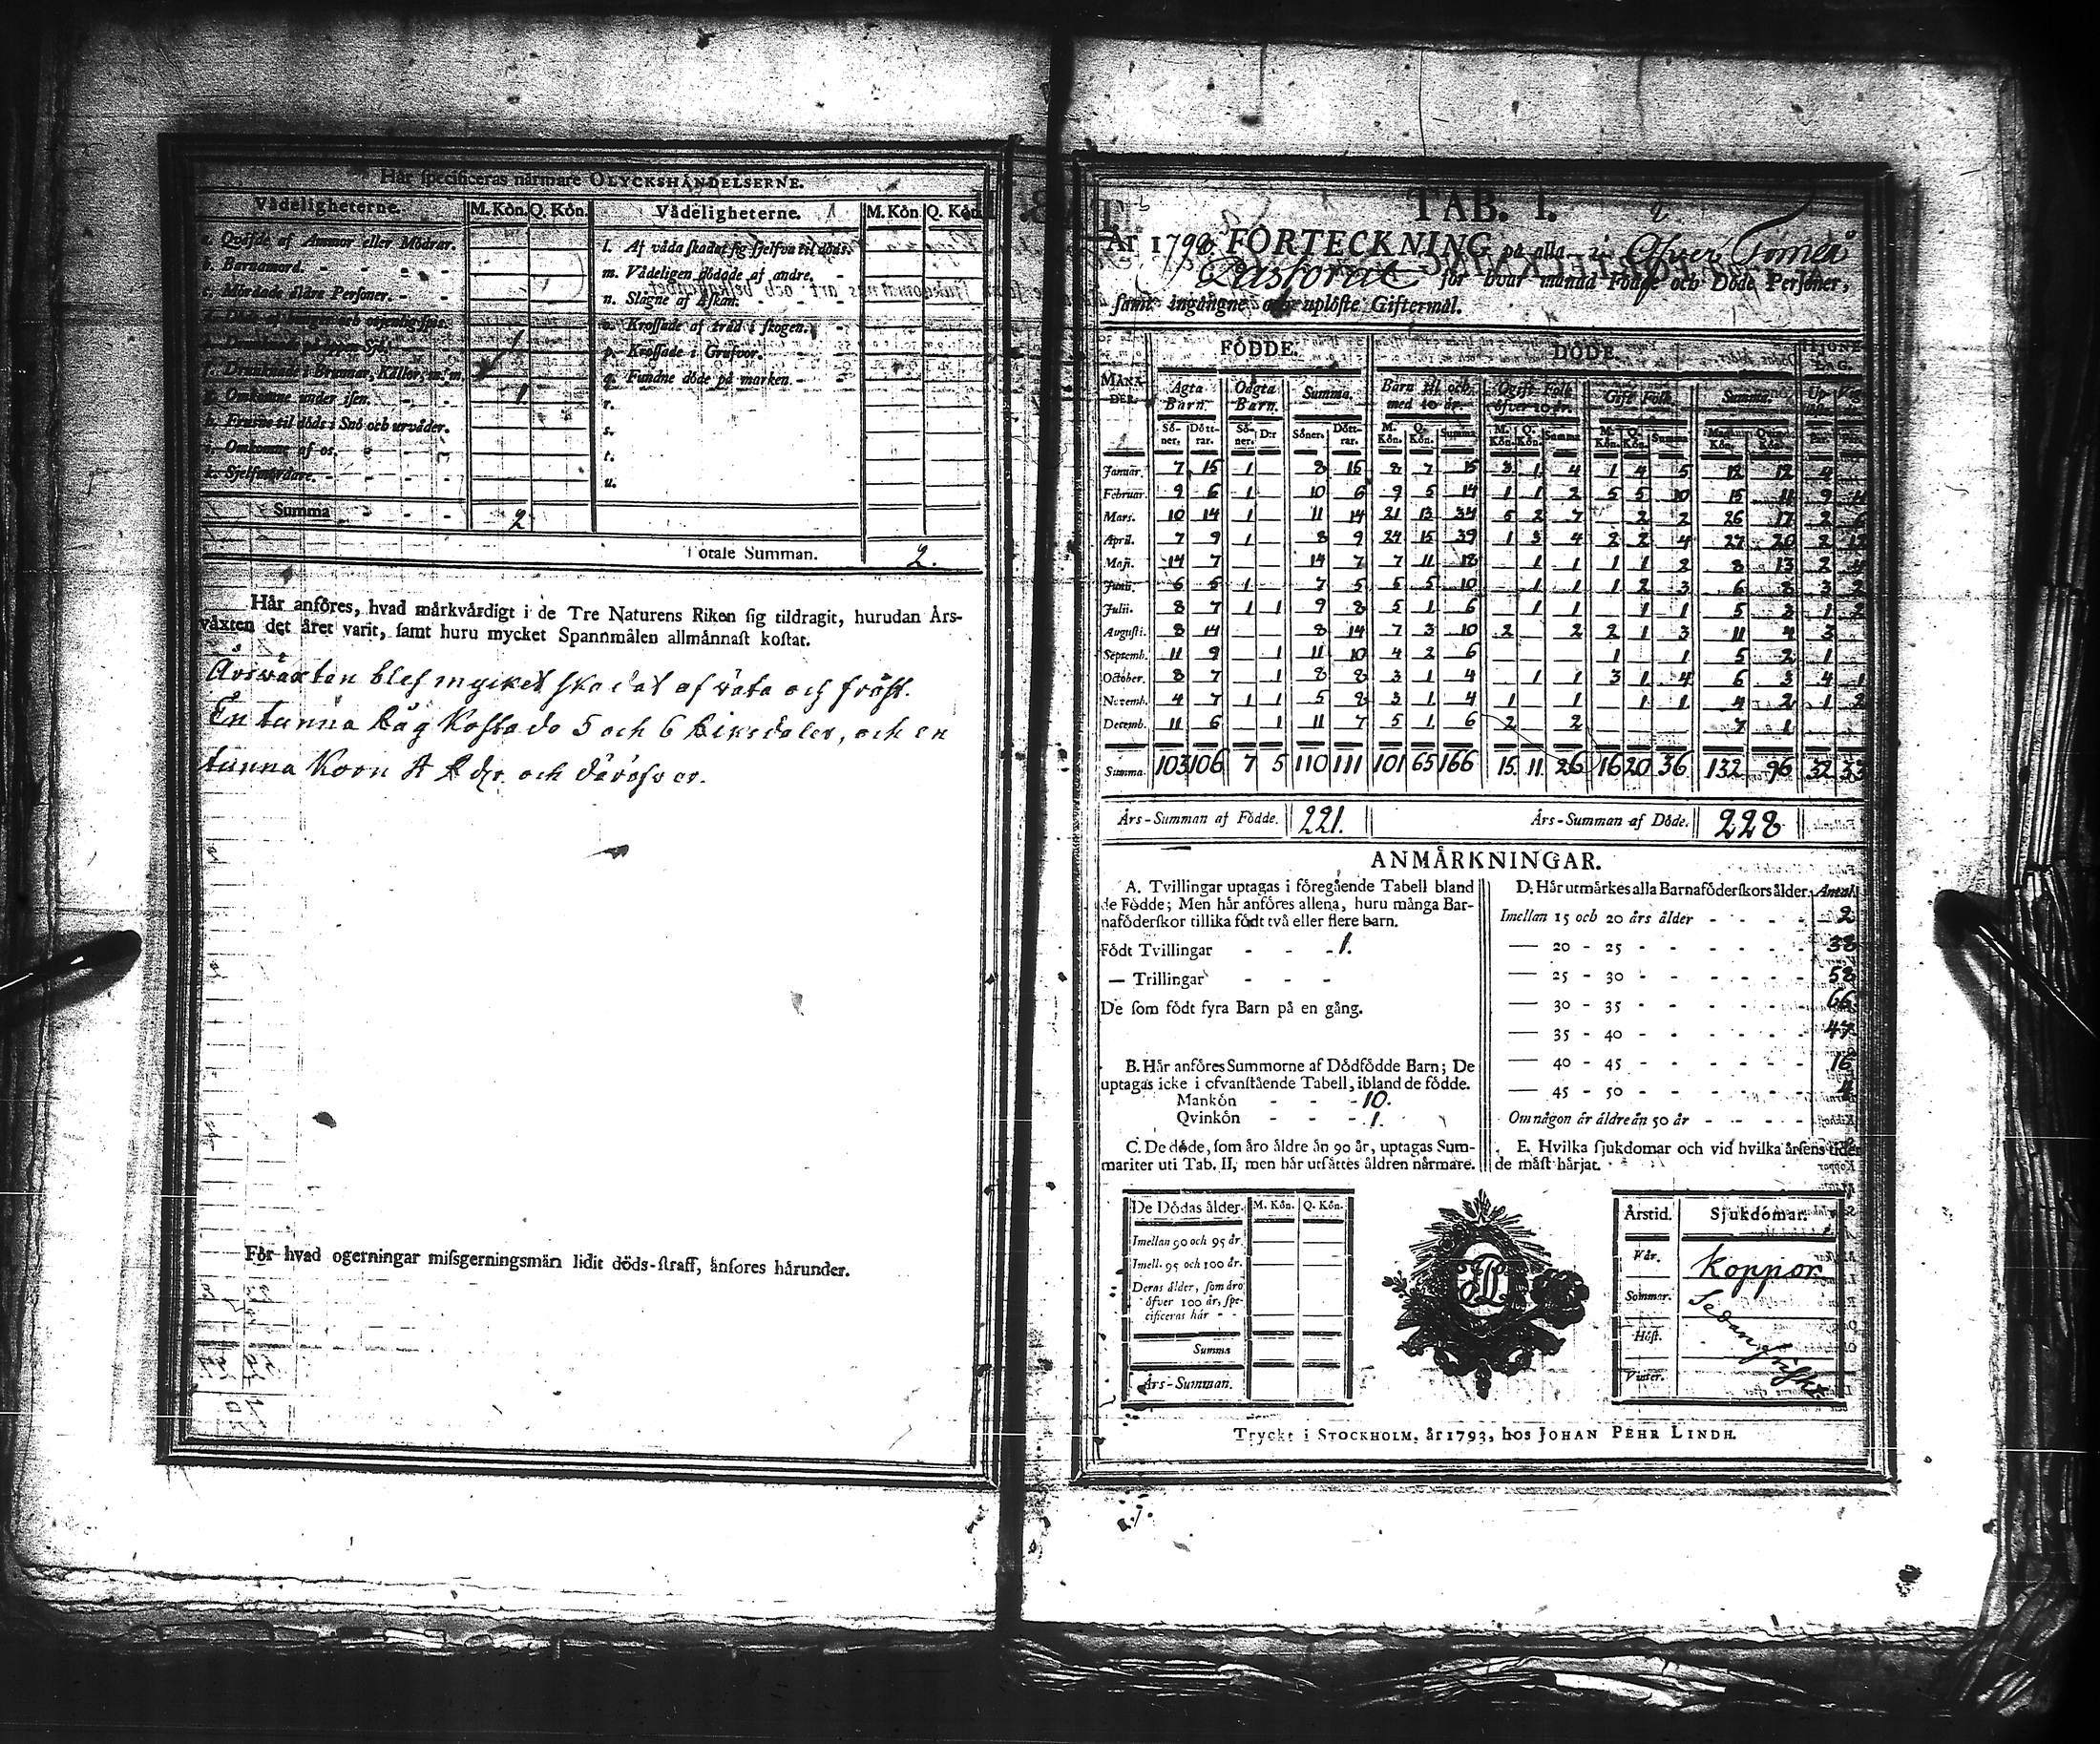 Här specificeras närmare OLYCKSHÄNDELSERNE.
Vådeligheterne. M. Kön. Q. Kön. Vådeligheterne. M. Kön. Q. Kön.
a. Qväfde af Ammor eller Mödrar. l. Af våda skadat sig sjelfva til döds.
b. Barnamord. m. Vådeligen dödade af andre.
c. Mördade äldre Personer. n. Slagne af Åskan.
o. Krossade af träd i skogen.
p. Krossade i Grufvor.
f. Drunknade i Brunnar, Källor, m. m. q. Fundne döde på marken.
g. Omkomne under isen. 1 r.
h. Frusne til döds i Snö och urväder. s.
i. Omkomne af os. t.
k. Sjelfmördare. u.
Summa 2
Totale Summan. 2.
Här anföres, hvad märkvärdigt i de Tre Naturens Riken sig tildragit, hurudan Års-
växten det året varit, samt huru mycket Spannmålen allmännast kostat.
Årsväxten blef mycket skadat af väta och fråst.
En tunna Råg Kostade 5 och 6 Riksdaler, och en
tunna Korn 4 Rdr och däröfver.
För hvad ogerningar missgerningsmän lidit döds-straff, anföres härunder.
TAB. I.
År 1798. FÖRTECKNING på alla i Öfver Torneå
Pastorat för hvar månad Födde och Döde Personer,
samt ingångne och uplöste Giftermål.
FÖDDE. DÖDE. HJONE-LAG.
MÅNADER. Ägta Barn. Oägta Barn. Summa. Barn til och med 10 år. Ogift Folk öfver 10 år. Gift Folk. Summa.
Söner. Döttrar. Söner. D:r Söner. Döttrar. M. Kön. Q. Kön. Summa M. Kön. Q. Kön. Summa M. Kön. Q. Kön. Summa
Januar. 7 15 1 8 16 8 7 15 3 1 4 1 4 5 12 12 4
Februar. 9 6 1 10 6 9 5 14 1 1 2 5 5 10 15 11 9
Mars. 10 14 1 11 14 21 13 34 5 2 7 2 2 26 17 2 6
April. 7 9 1 8 9 24 15 39 1 3 4 2 2 4 27 20 2 12
Maji. 14 7 14 7 7 11 18 1 1 1 1 2 8 13 2 4
Junii. 6 5 1 7 5 5 5 10 1 1 1 2 3 6 8 3 2
Julii. 8 7 1 1 9 8 5 1 6 1 1 1 1 5 3 1 2
Augusti. 8 14 8 14 7 3 10 2 2 2 1 3 11 4 3
Septemb. 11 9 1 11 10 4 2 6 1 1 5 2 1
October. 8 7 1 8 8 3 1 4 1 1 3 1 4 6 3 4 1
Novemb. 4 7 1 1 5 8 3 1 4 1 1 1 1 4 2 1 2
Decemb. 11 6 1 11 7 5 1 6 2 2 7 1
Summa. 103 106 7 5 110 111 101 65 166 15. 11. 26 16 20 36 132 96 32 33
Års-Summan af Födde. 221. Års-Summan af Döde. 228
ANMÄRKNINGAR.
A. Tvillingar uptagas i föregående Tabell bland
de Födde; Men här anföres allena, huru många Bar-
naföderskor tillika födt två eller flere barn.
Födt Tvillingar - - - 1.
— Trillingar - - -
De som födt fyra Barn på en gång.
B. Här anföres Summorne af Dödfödde Barn; De
uptagas icke i ofvanstående Tabell, ibland de födde.
Mankön - - - 10.
Qvinkön - - - 1.
C. De döde, som äro äldre än 90 år, uptagas Sum-
mariter uti Tab. II, men här utsättes åldren närmare.
D. Här utmärkes alla Barnaföderskors ålder. Antal
Imellan 15 och 20 års ålder - 2
— 20 - 25 - 32
— 25 - 30 - 58
— 30 - 35 - 66
— 35 - 40 - 47
— 40 - 45 - 16
— 45 - 50 -
Om någon är äldre än 50 år
E. Hvilka sjukdomar och vid hvilka årsens tider
de mäst härjat.
De Dödas ålder. M. Kön. Q. Kön.
Imellan 90 och 95 år.
Imell. 95 och 100 år.
Deras ålder, som äro
öfver 100 år, spe-
cificeras här
Summa
Års-Summan.
Årstid. Sjukdomar.
Vår. Koppor
Sommar.
Höst.
Vinter.
Tryckt i STOCKHOLM, år 1793, hos JOHAN PEHR LINDH.